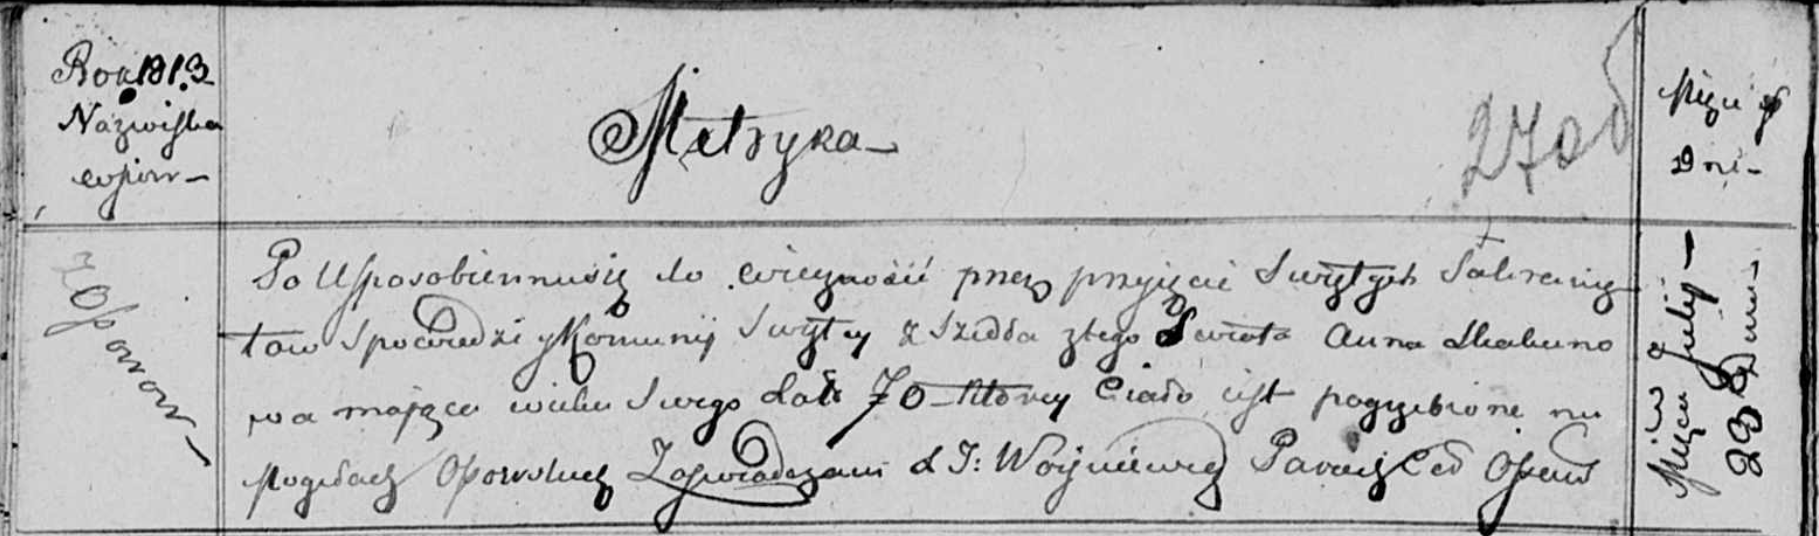 Rok 1813
Nazwiska
wsiow
Metryka
27 об
Miąc y
Dni
z Oporow
Po Usposobiennusię do wiecznośći przez przyięcie Swiętych Sakramię
tow Spowiedzi y Komunij Swiętey z Szedła ztego Swiata Anna Skakuno
wa maiąca wieku Swego Lat 70 ktorey Ciało iest pogrzebione na
Mogiłach Oporskich Zaswiadczam X J: Woyniewicz Paroch Ce
Miąca July
28 Dnia